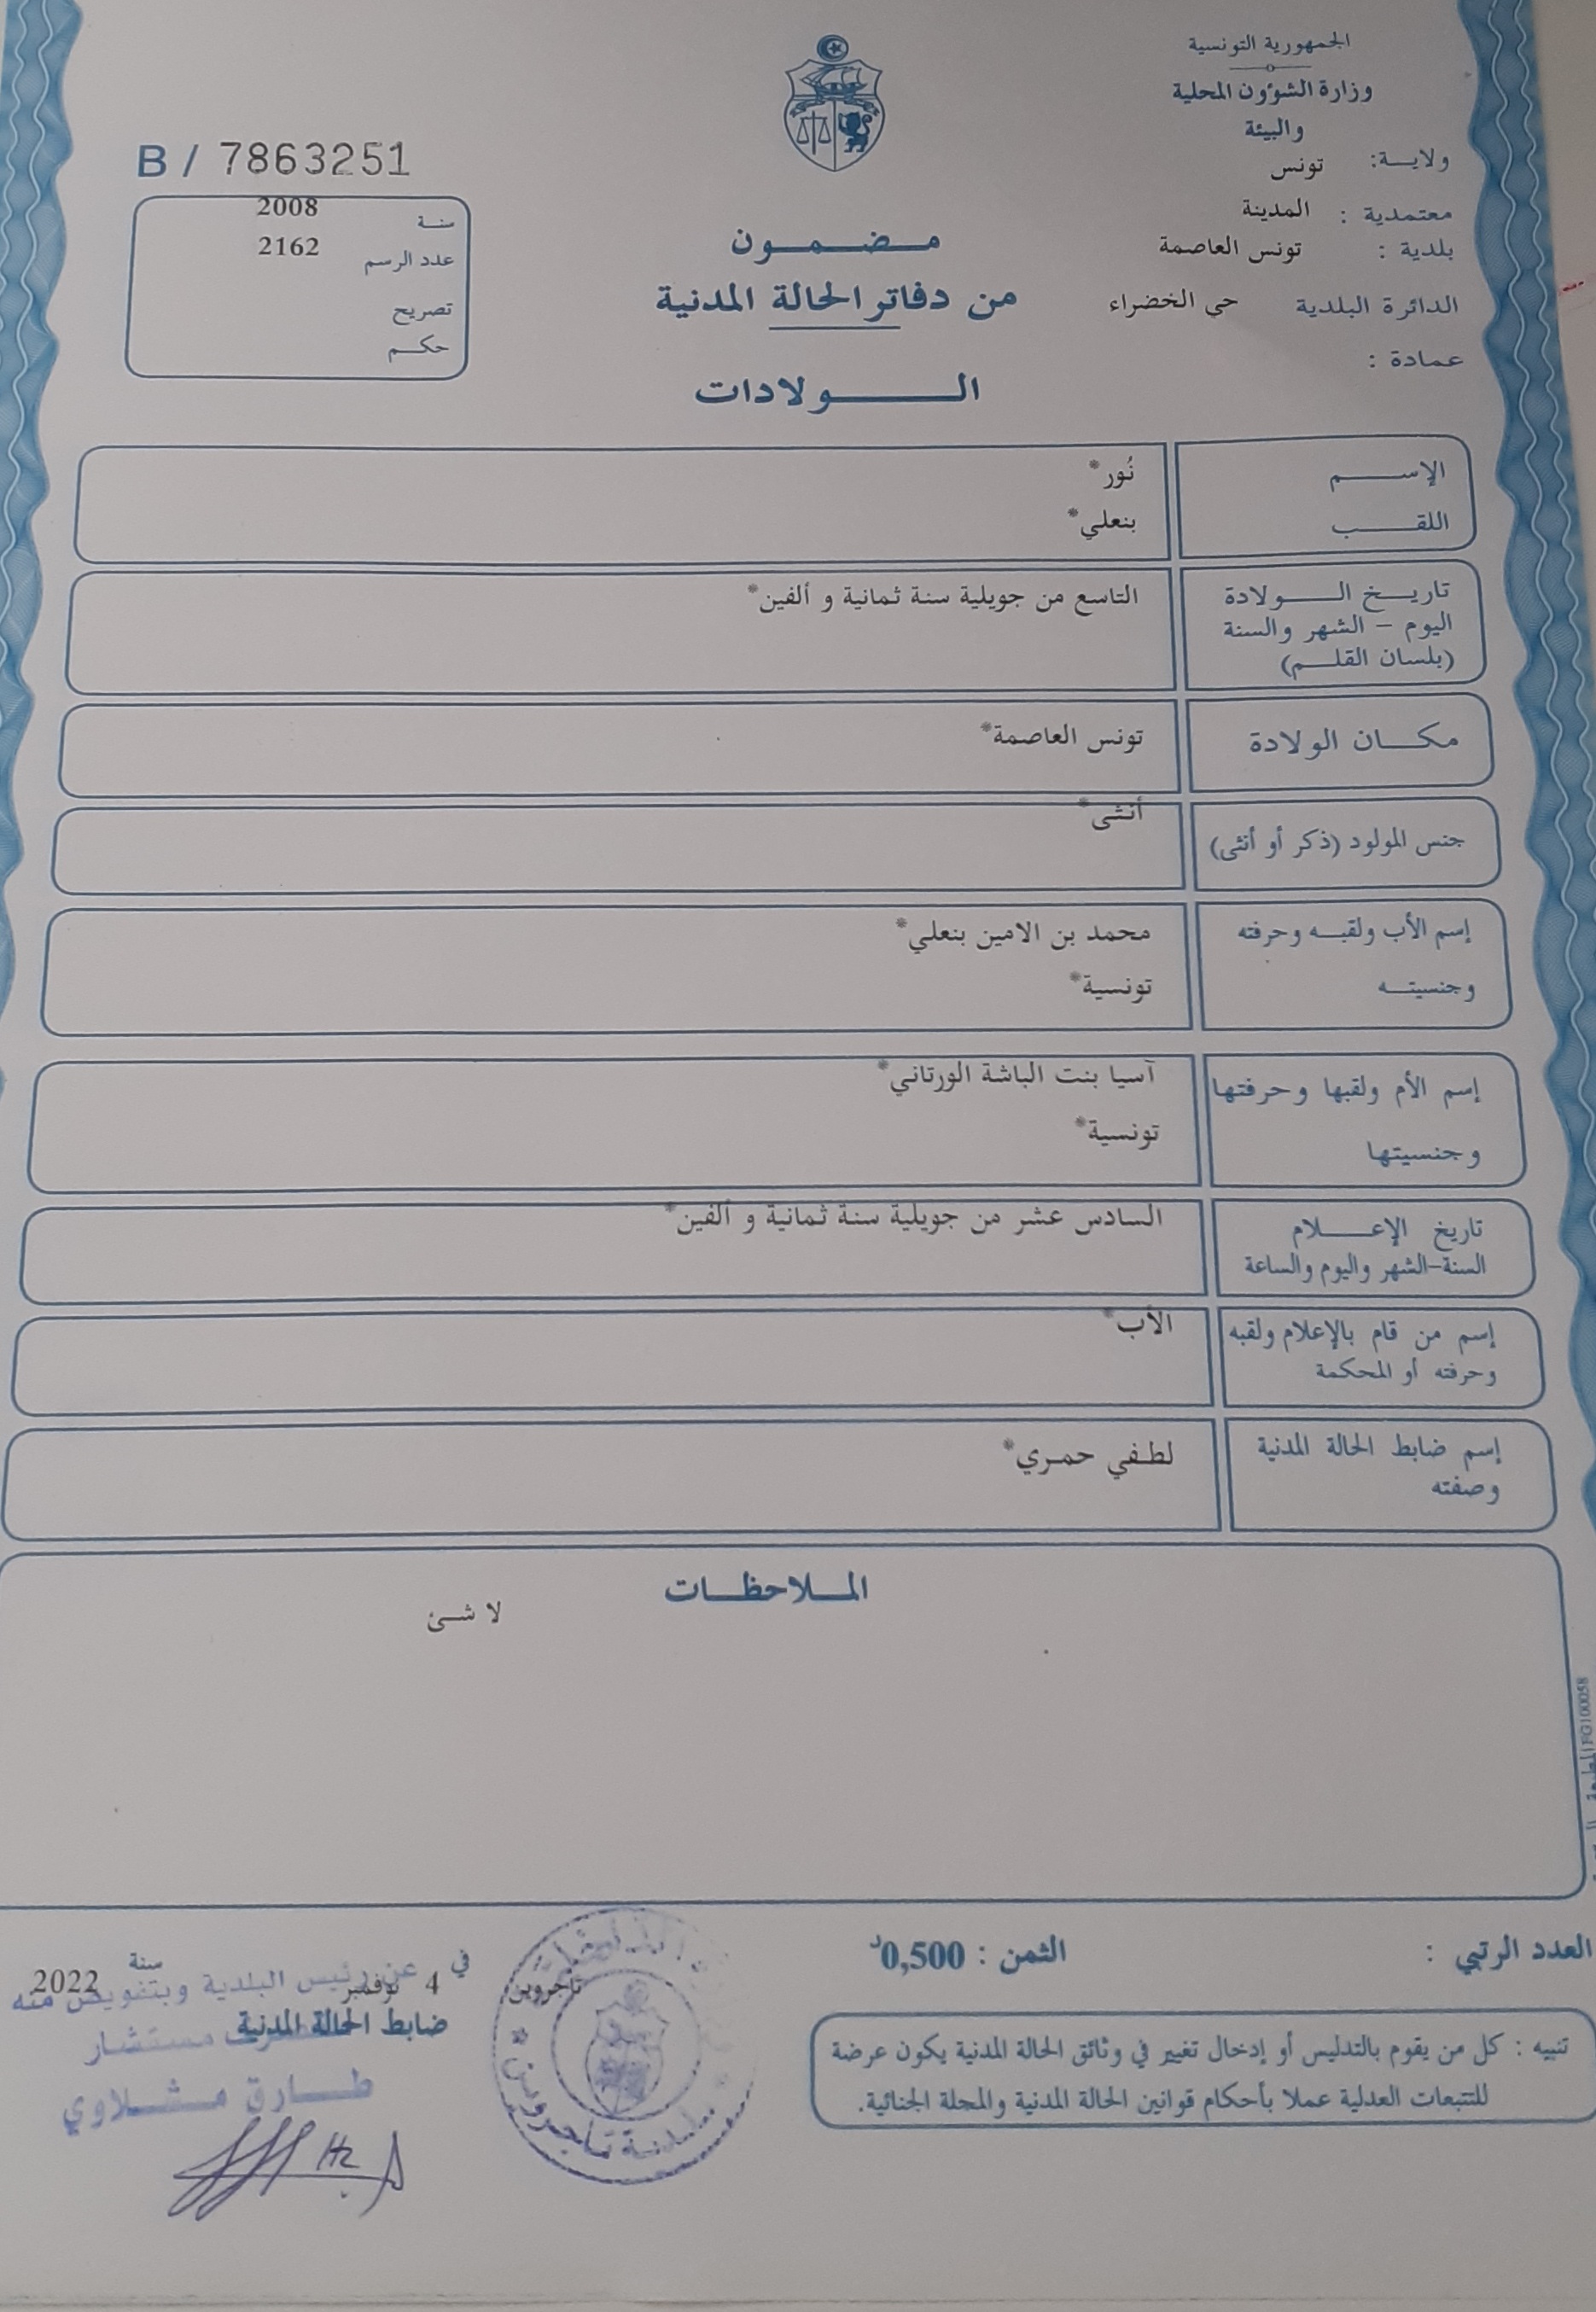 الجمهورية التونسية
وزارة الشؤون المحلية
والبيئة
ولايـــة: تونس
معتمدية : المدينة
بلدية : تونس العاصمة
الدائرة البلدية حي الخضراء
عمادة :
مـضـمـون
من دفاتر الحالة المدنية
الـولادات
B / 7863251
سنـة 2008
عدد الرسم 2162
تصريح
حكـم
الإسـم نُور*
اللقـب بنعلي*
تاريـخ الـولادة التاسع من جويلية سنة ثمانية و ألفين*
اليوم – الشهر والسنة
(بلسان القلـم)
مكـان الولادة تونس العاصمة*
جنس المولود (ذكر أو أنثى) أنثى*
إسم الأب ولقبـه وحرفته محمد بن الامين بنعلي*
وجنسيتـه تونسية*
إسم الأم ولقبها وحرفتها آسيا بنت الباشة الورتاني*
وجنسيتها تونسية*
تاريخ الإعـلام السادس عشر من جويلية سنة ثمانية و ألفين*
السنة-الشهر واليوم والساعة
إسم من قام بالإعلام ولقبه الأب*
وحرفته أو المحكمة
إسم ضابط الحالة المدنية لطفي حمري*
وصفته
الملاحظـات
لا شئ
FG100058
العدد الرتبي :
الثمن : 0,500د
تنبيه : كل من يقوم بالتدليس أو إدخال تغيير في وثائق الحالة المدنية يكون عرضة
للتتبعات العدلية عملا بأحكام قوانين الحالة المدنية والمجلة الجنائية.
تاجروين في 4 نوفمبر سنة 2022
ضابط الحالة المدنية
عن رئيس البلدية وبتفويض منه
مستشار
طـارق مشـلاوي
بلدية تاجروين